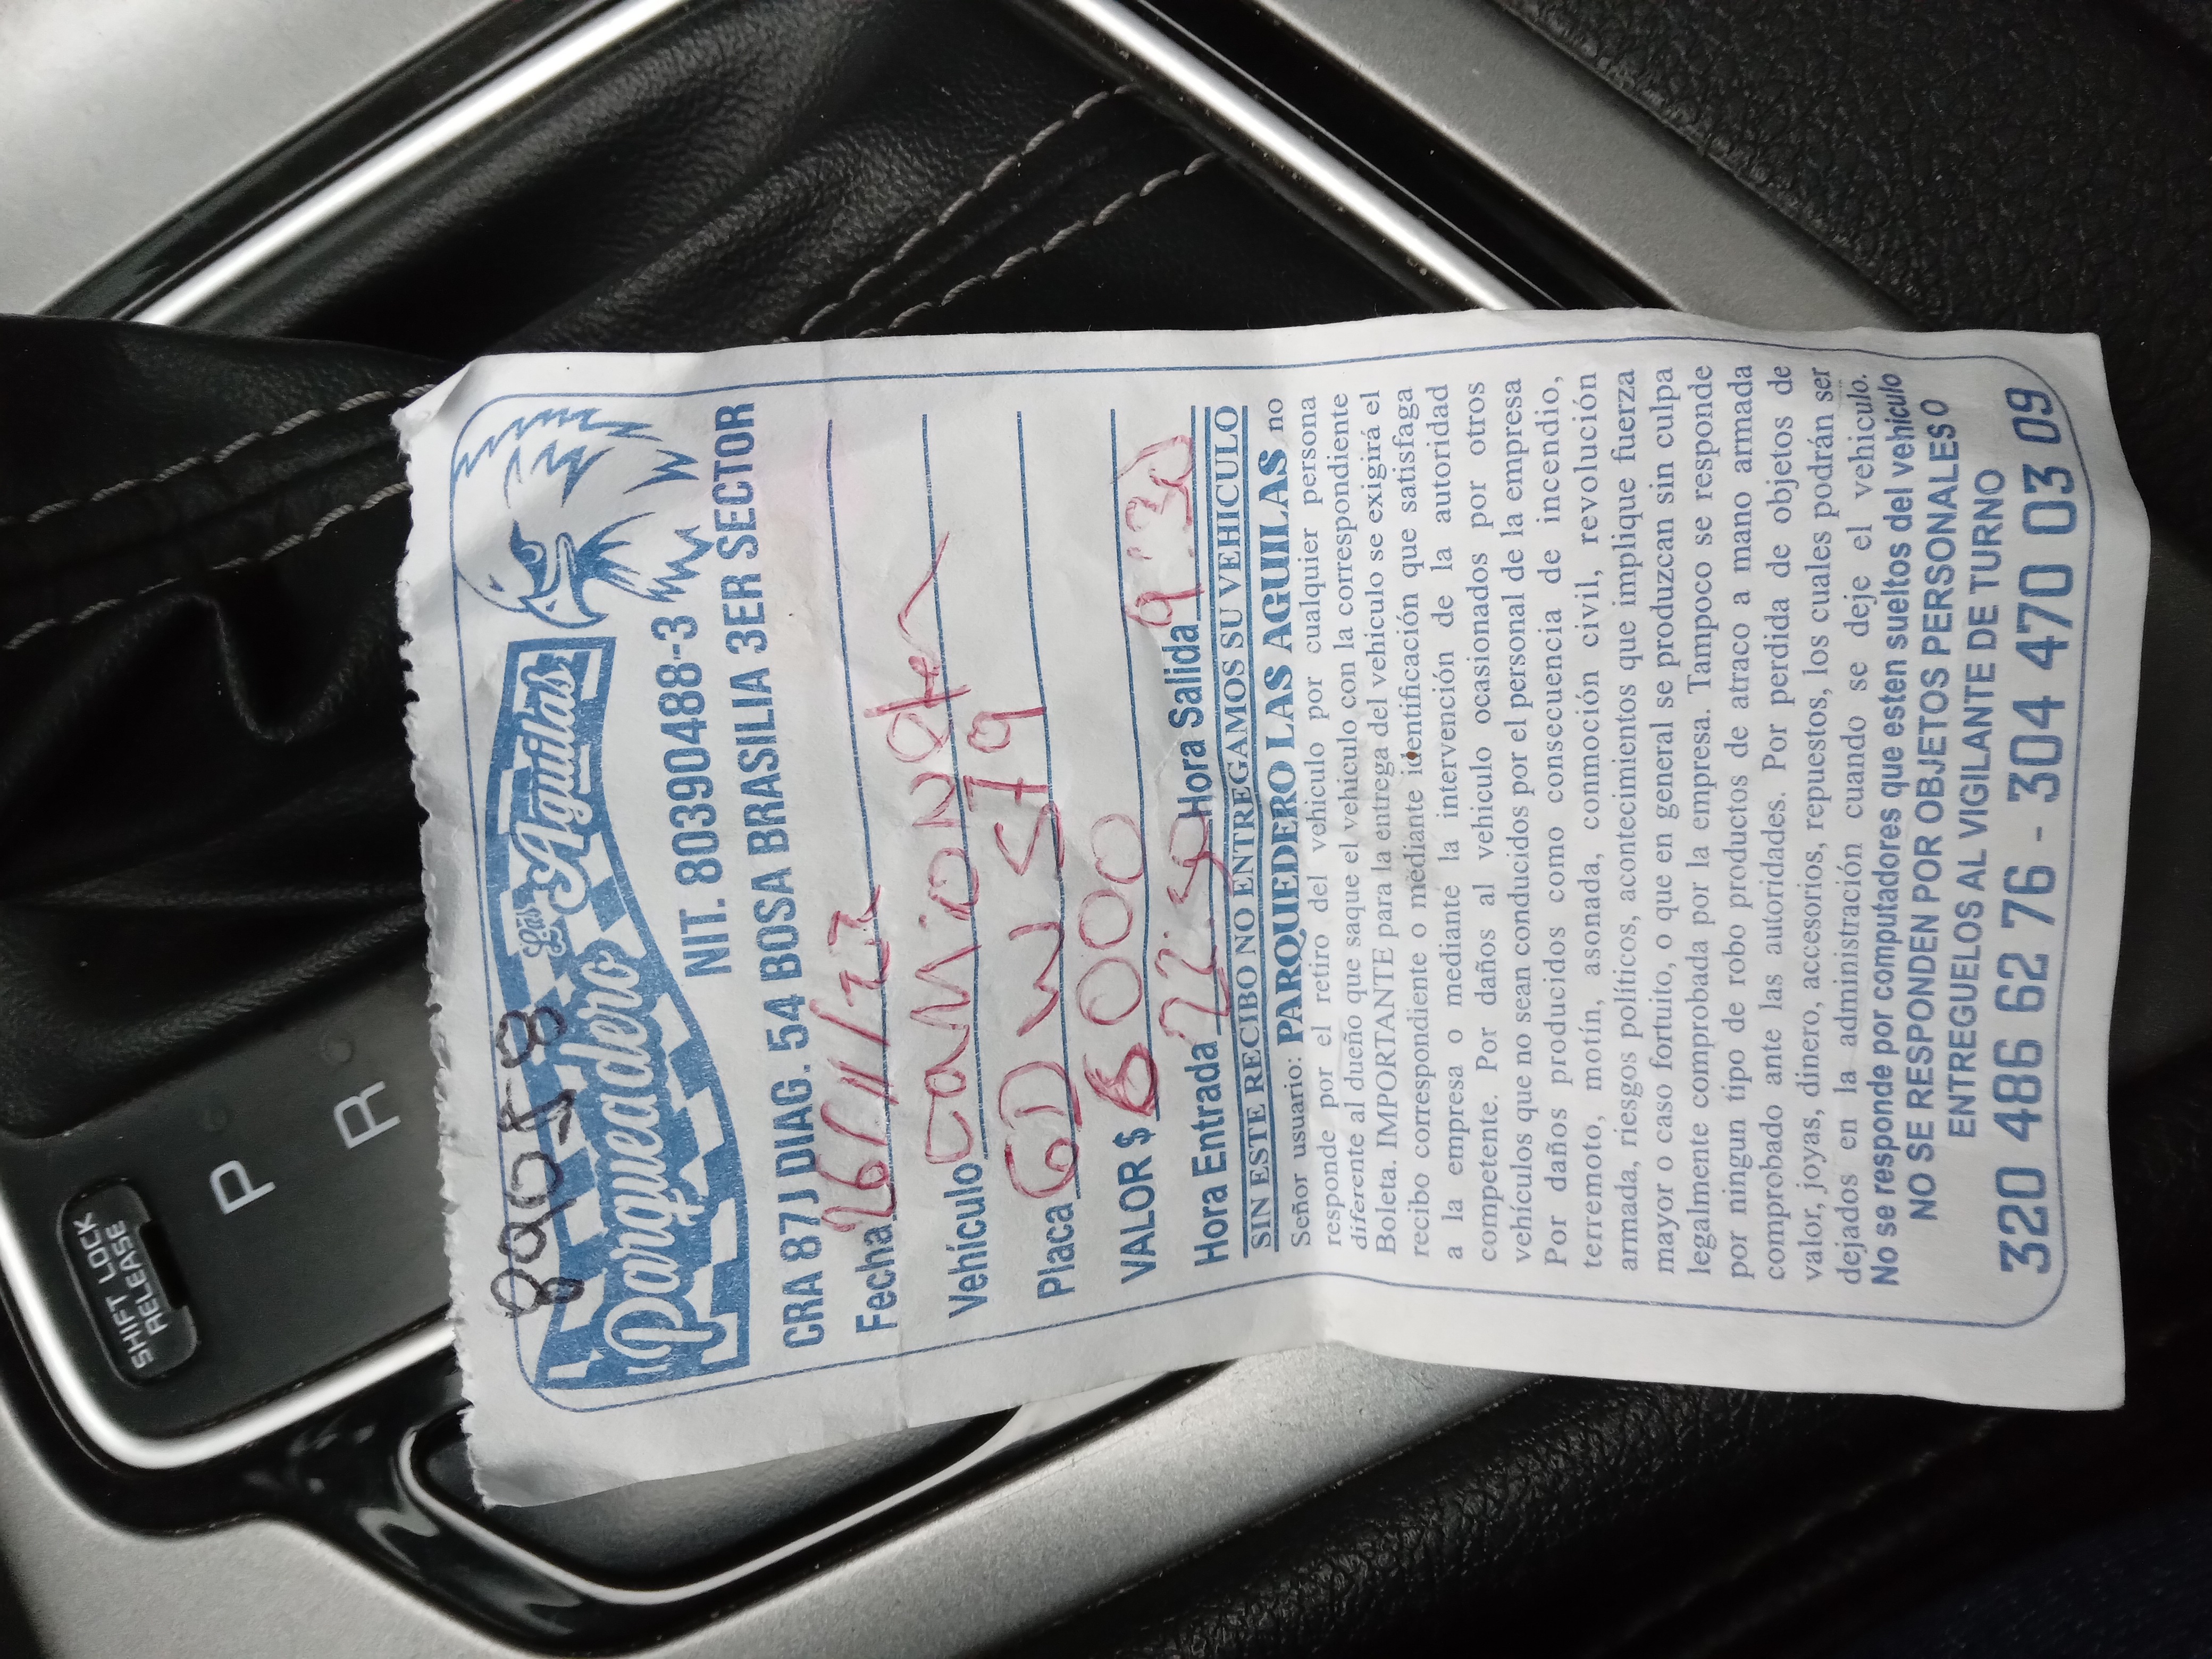 SHIFT LOCK
RELEASE
P
R
Parqueadero Las Aguilas
NIT. 80390488-3
CRA 87J DIAG. 54 BOSA BRASILIA 3ER SECTOR
Fecha 26/11/22
Vehículo
Placa GDW 579
VALOR $ 6000
Hora Entrada 22:50 Hora Salida 9:30
SIN ESTE RECIBO NO ENTREGAMOS SU VEHICULO
Señor usuario: PARQUEDERO LAS AGUILAS no
responde por el retiro del vehiculo por cualquier persona
diferente al dueño que saque el vehiculo con la correspondiente
Boleta. IMPORTANTE para la entrega del vehiculo se exigirá el
recibo correspondiente o mediante identificación que satisfaga
a la empresa o mediante la intervención de la autoridad
competente. Por daños al vehiculo ocasionados por otros
vehículos que no sean conducidos por el personal de la empresa
Por daños producidos como consecuencia de incendio,
terremoto, motín, asonada, comoción civil, revolución
armada, riesgos políticos, acontecimientos que implique fuerza
mayor o caso fortuito, o que en general se produzcan sin culpa
legalmente comprobada por la empresa. Tampoco se responde
por ningun tipo de robo productos de atraco a mano armada
comprobado ante las autoridades. Por perdida de objetos de
valor, joyas, dinero, accesorios, repuestos, los cuales podrán ser
dejados en la administración cuando se deje el vehiculo.
No se responde por computadores que esten sueltos del vehiculo
NO SE RESPONDEN POR OBJETOS PERSONALES O
ENTREGUELOS AL VIGILANTE DE TURNO
320 486 62 76 - 304 470 03 09